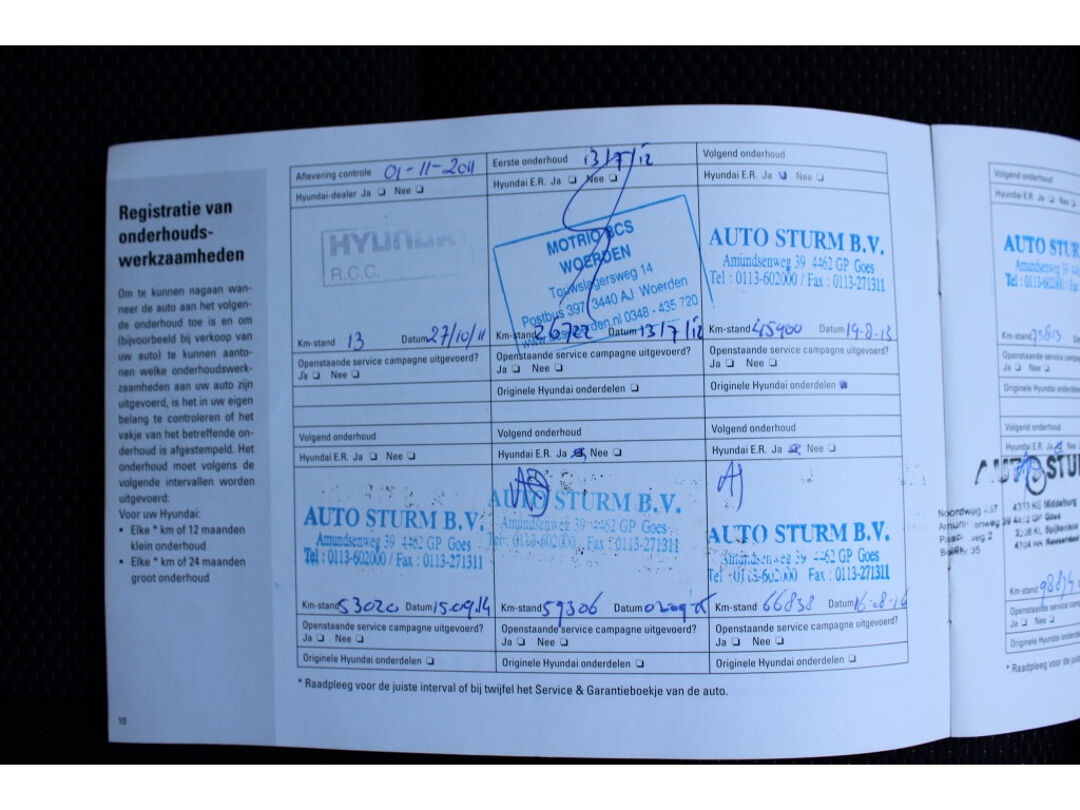 Registratie van
onderhouds-
werkzaamheden
Om te kunnen nagaan wan-
neer de auto aan het volgen-
de onderhoud toe is en om
(bijvoorbeeld bij verkoop van
uw auto) te kunnen aanto-
nen welke onderhoudswerk-
zaamheden aan uw auto zijn
uitgevoerd, is het in uw eigen
belang te controleren of het
vakje van het betreffende on-
derhoud is afgestempeld. Het
onderhoud moet volgens de
volgende intervallen worden
uitgevoerd:
Voor uw Hyundai:
• Elke * km of 12 maanden
klein onderhoud
• Elke * km of 24 maanden
groot onderhoud
10
Aflevering controle 01-11-2011
Hyundai-dealer Ja Nee
HYUNDAI
R.C.C.
Km-stand 13 Datum 27/10/11
Openstaande service campagne uitgevoerd?
Ja Nee
Eerste onderhoud 13/7/12
Hyundai E.R. Ja Nee
MOTRIO BCS
WOERDEN
Touwslagersweg 14
Postbus 397, 3440 AJ Woerden
0348 - 435 720
Km-stand 26722 Datum 13/7/12
Openstaande service campagne uitgevoerd?
Ja Nee
Originele Hyundai onderdelen
Volgend onderhoud
Hyundai E.R. Ja Nee
AUTO STURM B.V.
Amundsenweg 39 4462 GP Goes
Tel : 0113-602000 / Fax : 0113-271311
Km-stand 45900 Datum 19-8-13
Openstaande service campagne uitgevoerd?
Ja Nee
Originele Hyundai onderdelen
Volgend onderhoud
Hyundai E.R. Ja Nee
AUTO STURM B.V.
Amundsenweg 39 4462 GP Goes
Tel : 0113-602000 / Fax : 0113-271311
Km-stand 53020 Datum 15.09.14
Openstaande service campagne uitgevoerd?
Ja Nee
Originele Hyundai onderdelen
Volgend onderhoud
Hyundai E.R. Ja Nee
AUTO STURM B.V.
Amundsenweg 39 4462 GP Goes
Tel : 0113-602000 / Fax : 0113-271311
Km-stand 59306 Datum
Openstaande service campagne uitgevoerd?
Ja Nee
Originele Hyundai onderdelen
Volgend onderhoud
Hyundai E.R. Ja Nee
AUTO STURM B.V.
Amundsenweg 39 4462 GP Goes
Tel : 0113-602000 Fax : 0113-271311
Km-stand 66838 Datum 16-08-16
Openstaande service campagne uitgevoerd?
Ja Nee
Originele Hyundai onderdelen
* Raadpleeg voor de juiste interval of bij twijfel het Service & Garantieboekje van de auto.
Volgend onderhoud
Hyundai E.R. Ja Nee
AUTO STUR
Amundsenweg 39
Tel : 0113-602
Km-stand
Openstaande service
Ja Nee
Originele Hyundai
Volgend onderhoud
Hyundai E.R. Ja Nee
AUTO STU
Noordweg
Middelburg
4462 GP Goes
Km-stand
Openstaande service
Ja Nee
Originele Hyundai
* Raadpleeg voor de juis